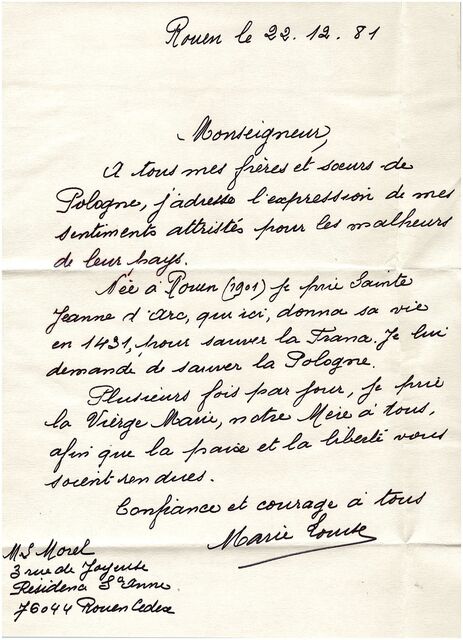 Rouen le 22.12.81
Monseigneur,
A tous mes frères et sœurs de
Pologne, j'adresse l'expression de mes
sentiments attristés pour les malheurs
de leur pays.
Née à Rouen (1901) je prie Sainte
Jeanne d'Arc, qui ici, donna sa vie
en 1431, pour sauver la France. Je lui
demande de sauver la Pologne.
Plusieurs fois par jour, je prie
la Vierge Marie, notre Mère à tous,
afin que la paix et la liberté vous
soient rendues.
Confiance et courage à tous
Marie Louise
M L Morel
3 rue de Joyeuse
Résidence Ste Anne
76044 Rouen Cedex